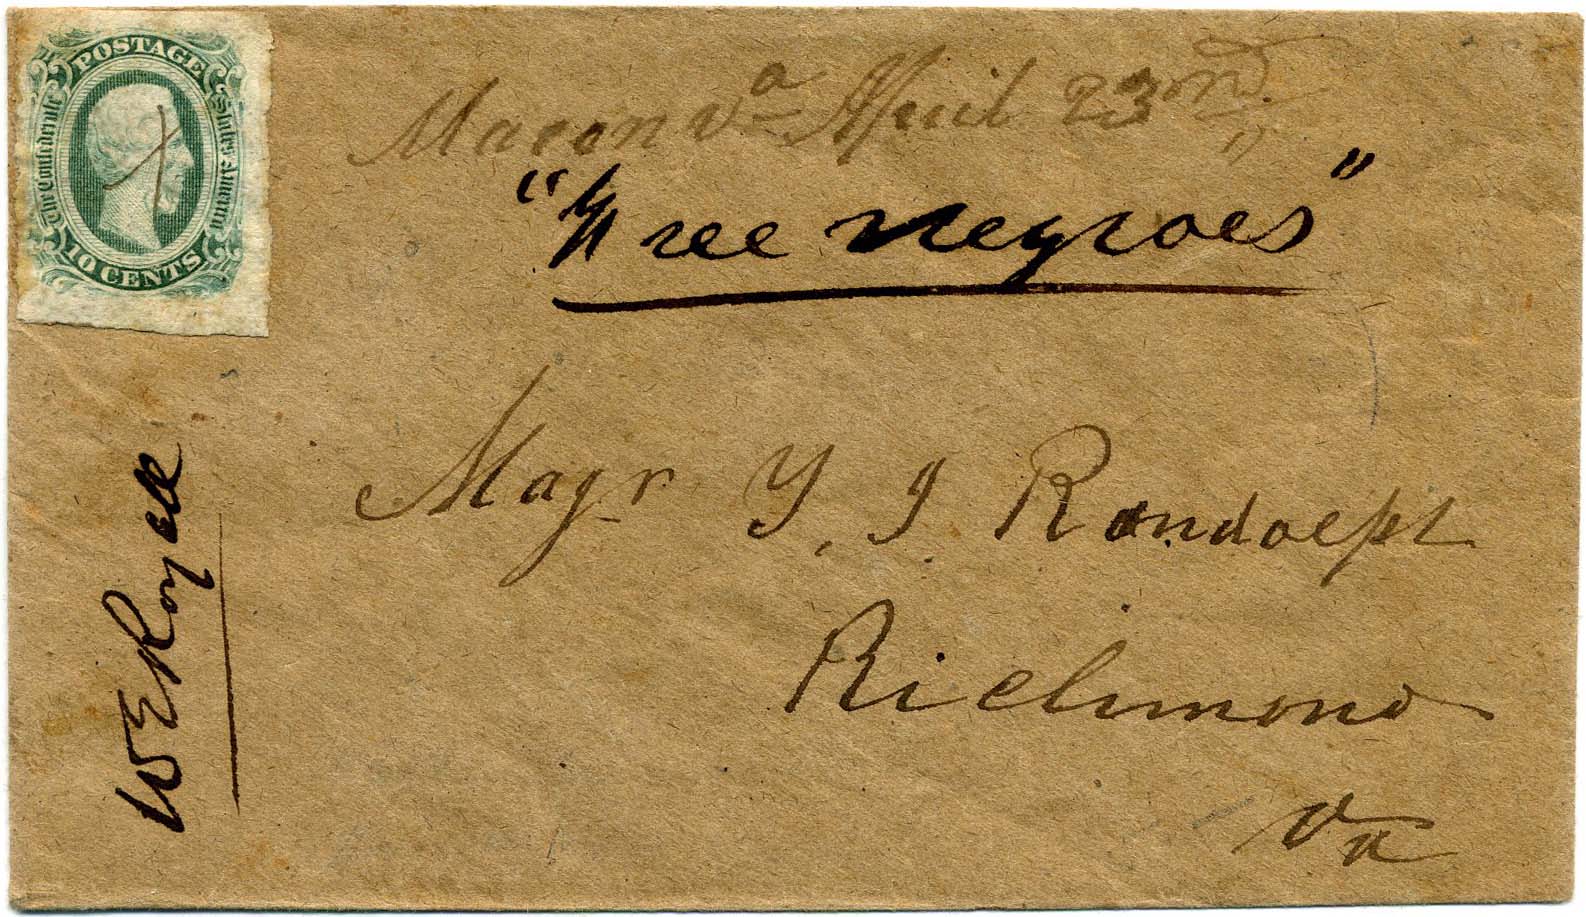 POSTAGE
The Confederate
States America
10 CENTS
Macon Va April 23rd
"Free negroes"
Majr Y. J. Randolph
Richmond
Va
W E Royall